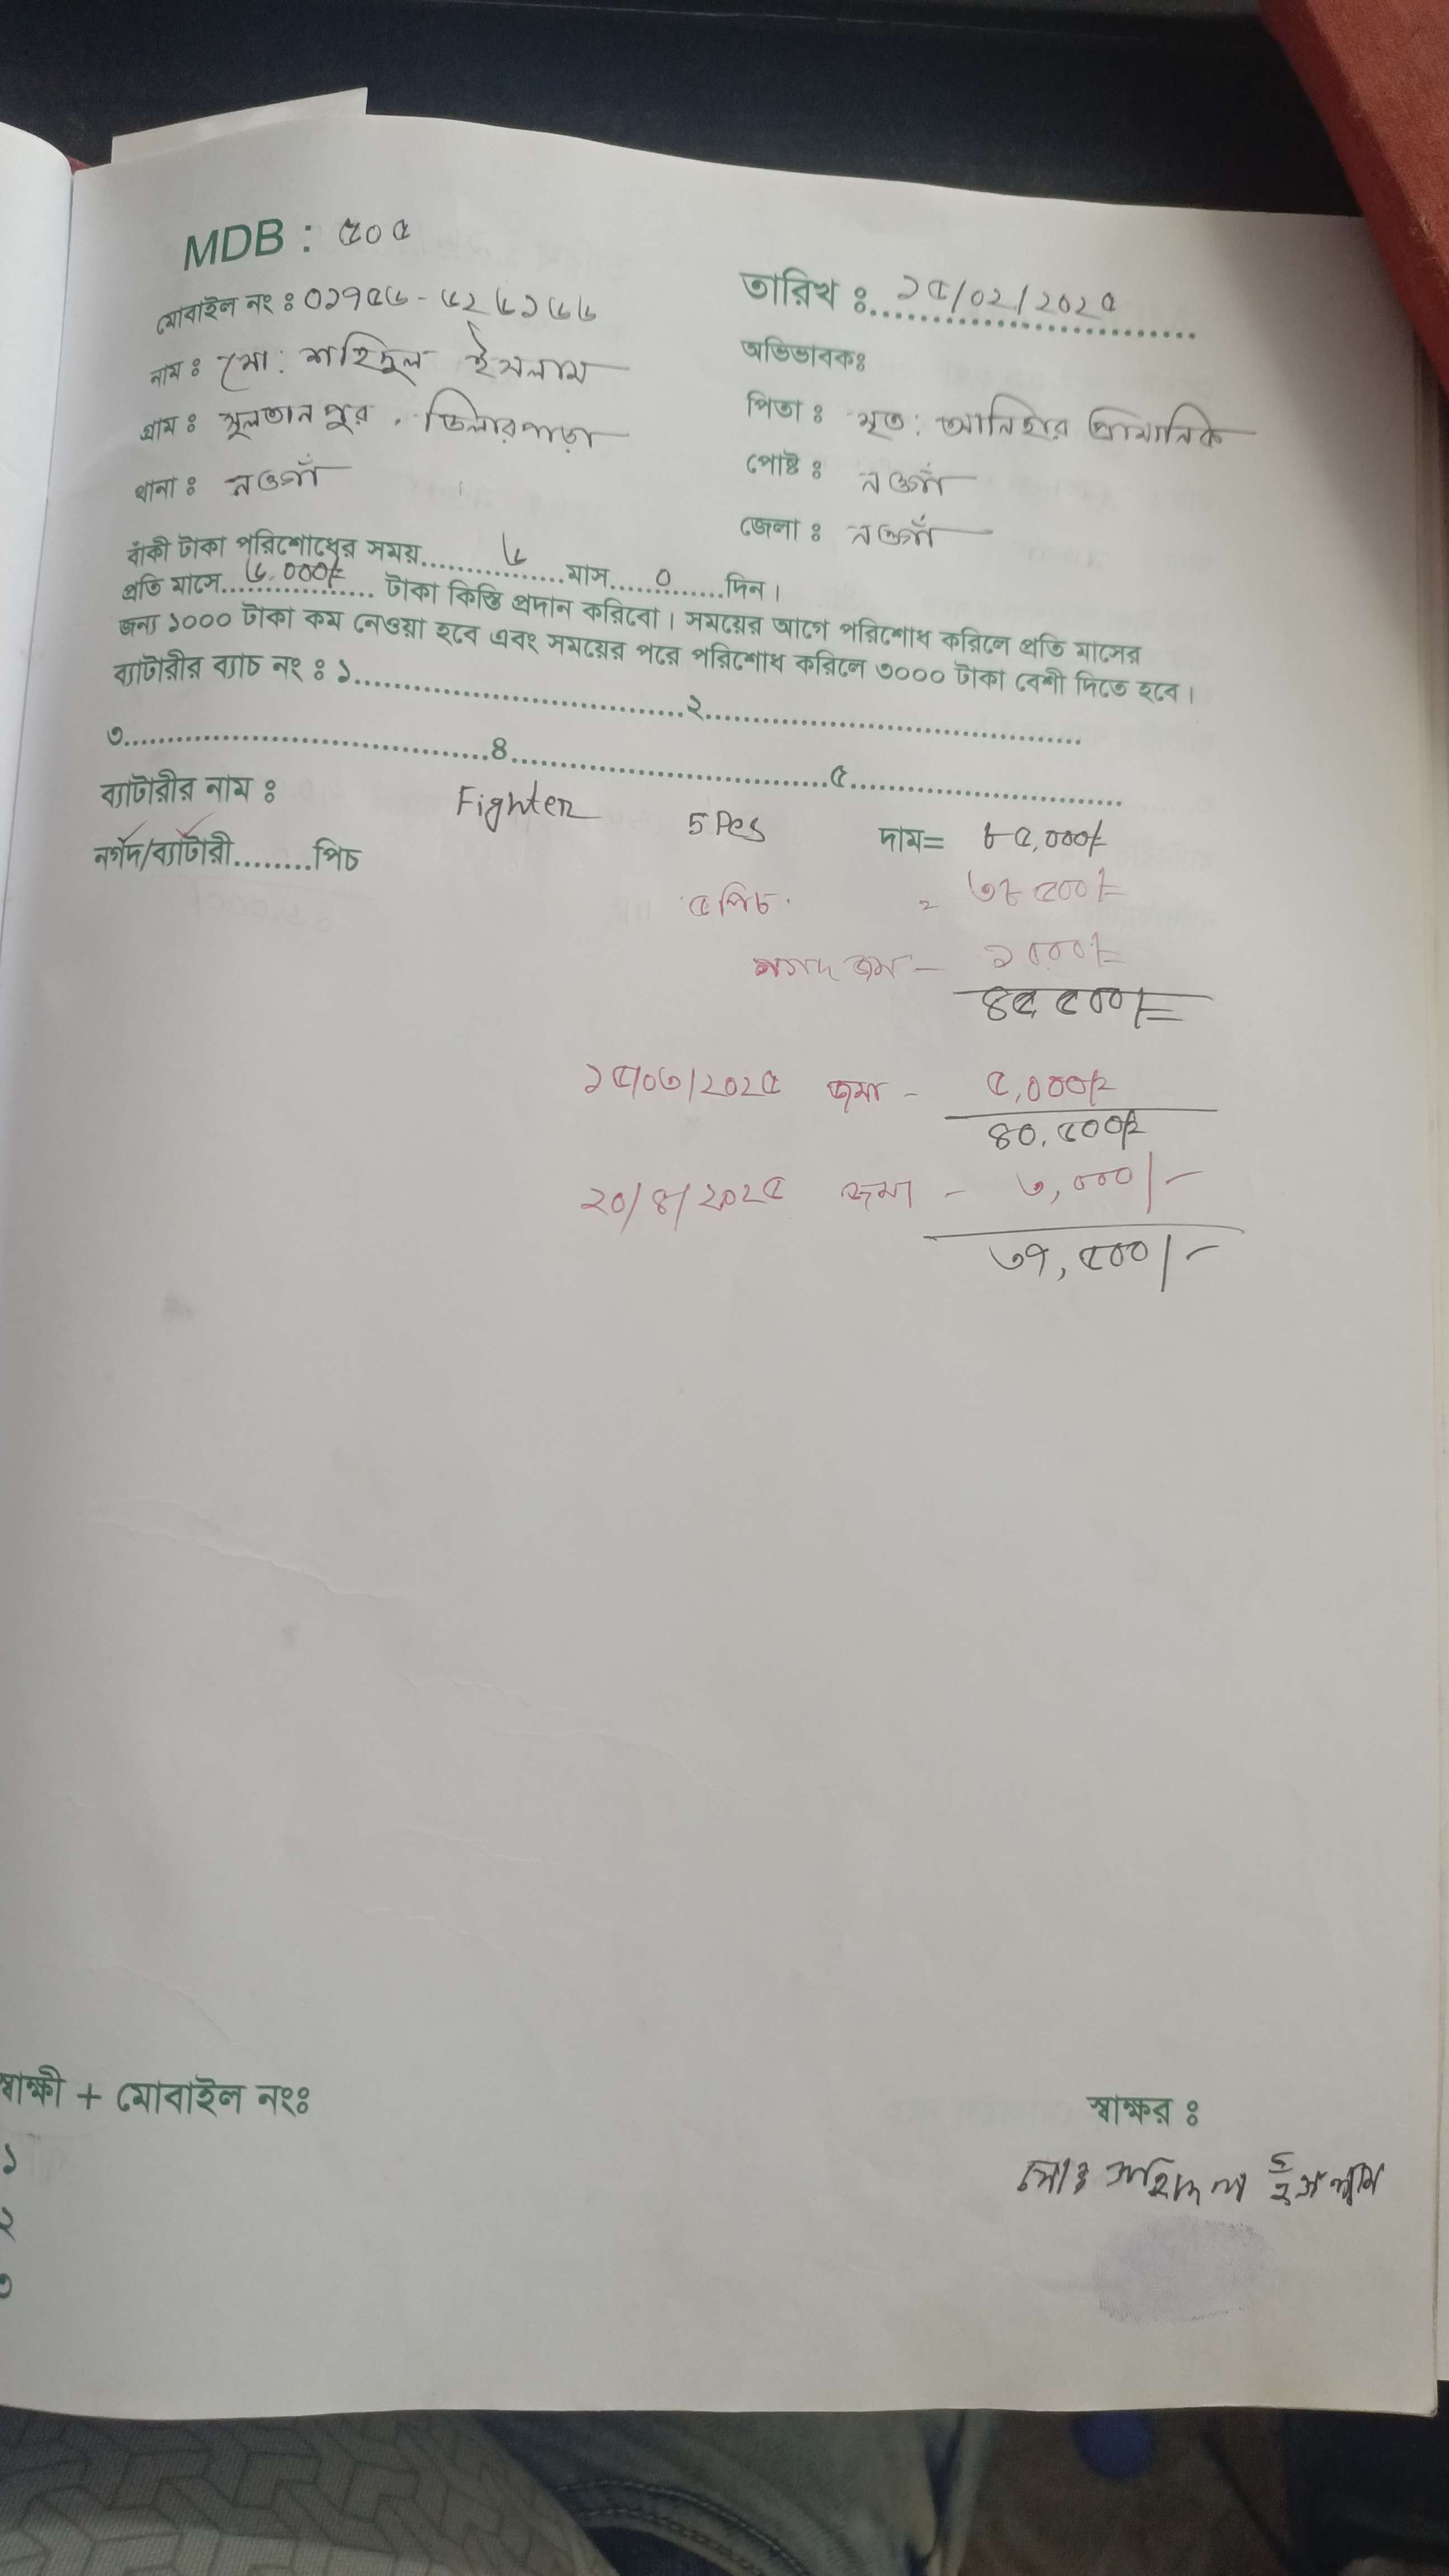 MDB : ৫০৫
তারিখ ঃ ১৫/০২/২০২৫
মোবাইল নং ঃ ০১৭৫৬-৬২৬১৬৬
অভিভাবকঃ
নাম ঃ মো: শহিদুল ইসলাম
পিতা ঃ মৃত: আনিহার প্রামানিক
গ্রাম ঃ সুলতানপুর, জিলারপাড়া
পোষ্ট ঃ নওগাঁ
থানা ঃ নওগাঁ
জেলা ঃ নওগাঁ
বাঁকী টাকা পরিশোধের সময়................৬.....মাস.....০.......দিন।
প্রতি মাসে...৬,০০০/=... টাকা কিস্তি প্রদান করিবো। সময়ের আগে পরিশোধ করিলে প্রতি মাসের
জন্য ১০০০ টাকা কম নেওয়া হবে এবং সময়ের পরে পরিশোধ করিলে ৩০০০ টাকা বেশী দিতে হবে।
ব্যাটারীর ব্যাচ নং ঃ ১......................................২............................................
৩..........................................৪....................................৫................................
ব্যাটারীর নাম ঃ Fighter 5 Pcs দাম= ৮৫,০০০/=
নগদ/ব্যাটারী........পিচ
৫ পিচ = ৩৮৫০০/=
নগদ জমা - ১০০০/=
৪৫৫০০/=
১৫/০৩/২০২৫ জমা - ৫,০০০/=
৪০,৫০০/=
২০/৪/২০২৫ জমা - ৩,০০০/-
৩৭,৫০০/-
স্বাক্ষী + মোবাইল নংঃ
স্বাক্ষর ঃ
১
মোঃ শহিদুল ইসলাম
২
৩